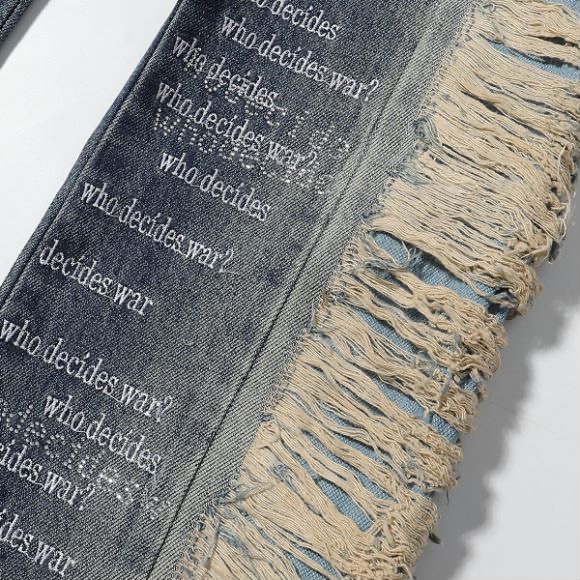 who decides
who.decides.war?
who.decides
who.decides.war?
who.decides
who.decides.war?
decides.war
who.decides.war?
who.decides
ides.war?
ides.war